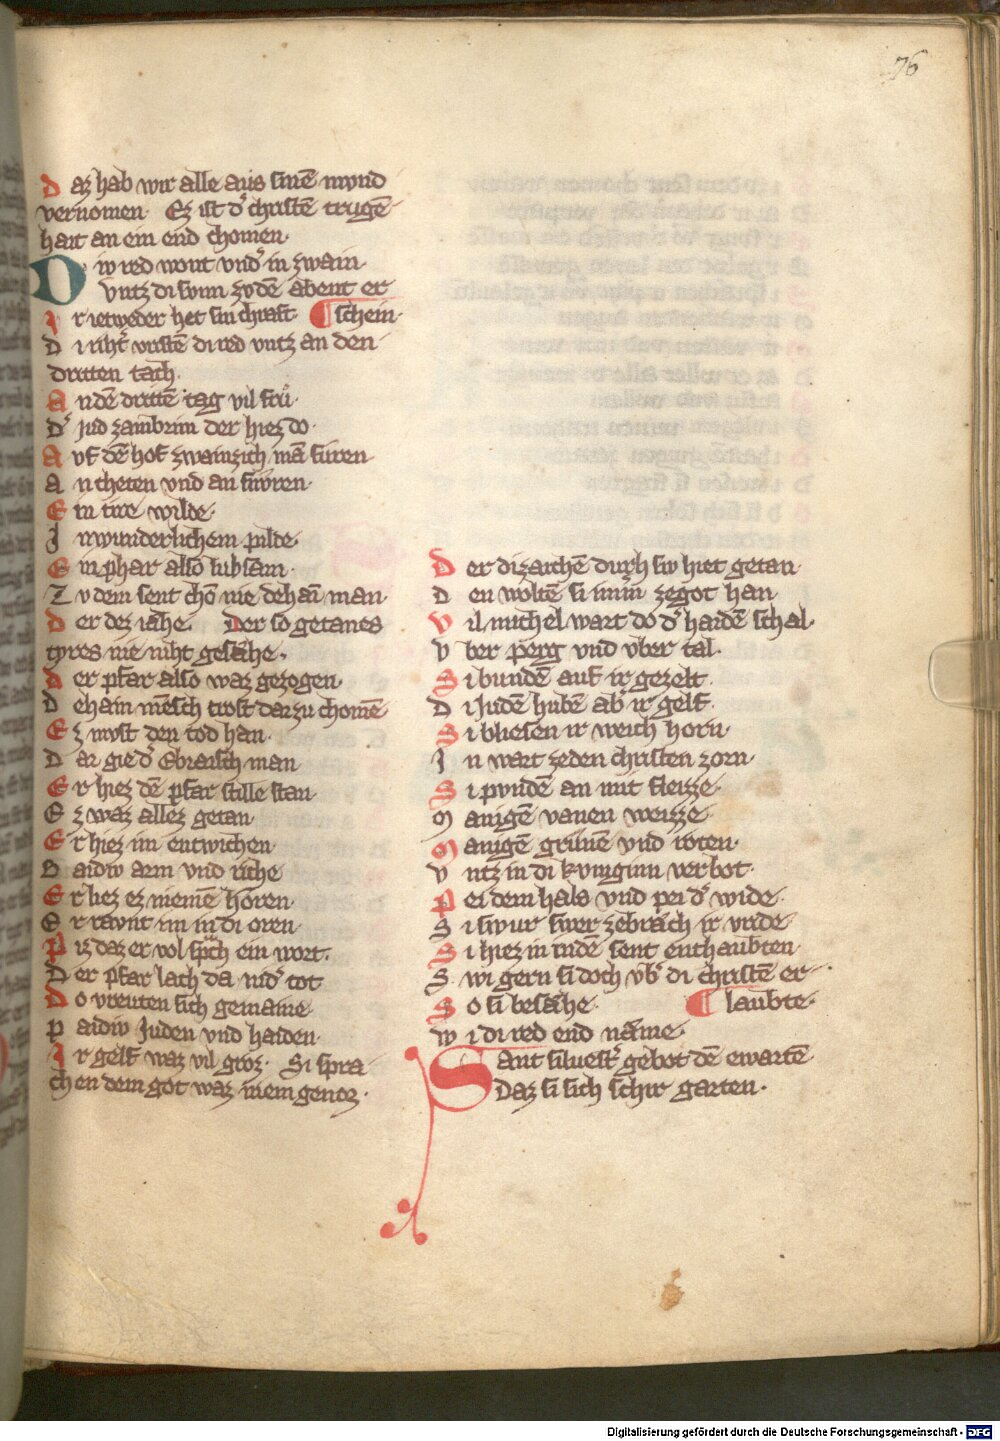 76
D az hab wir alle aus sinē mvnd
vernomen· Ez ist d̾ christē trugē
hait an ein end chomen·
D iv red wont vnd̾ in zwain·
Vntz di svnn zvdē abent er
I r ietweder het sin chraft· ¶ schein·
D i riht̾ vristē di red vntz an den
dritten tach·
A n dē drittē tag vil frů
D̾ jud zambrim der hiez do·
A vf dē hof zwainzich mā furen
A n cheten vnd an snvren·
E in tire wilde·
I n wunderlichem pilde·
E in phar also lubsam·
Z v dem sent chō nie dehaī man·
D er dez iahe· Der so getanes
tyres nie niht gesæhe·
D er pfar also waz gezogen·
D ehain mēsch trost dar zu chomē
E z mvst den tod han·
D ar gie d̾ Ebraisch man
E r hiez dē pfar stille stan·
E z waz allez getan
E r hiez im entwichen·
B aidiv arm vnd riche
E r liez ez niemē hören·
E r ravnt im in di oren·
P iz daz er vol sprach ein wort·
D er pfar lach da nid̾ tot
D o vreuten sich gemaine·
P aidiv Juden vnd haiden·
I r gelf waz vil groz· Si spra
chen dem got waz niem genoz·
D er di zaichē durch siv hiet getan·
D en woltē si immˀ ze got han
V il michel wart do d̾ haidē schal·
V ber perg vnd vber tal·
S i bundē auf ir gezelt·
D i Judē hubē ab̾ ir gelf·
S i bliesen ir weich horn·
I n wart zeden christen zorn·
S i pvndē an mit fleizze·
M anigē vanen weizze·
M anigē grünē vnd roten·
V ntz in di kvniginn verbot·
P ei dem hals vnd pei d̾ wide·
S i swur swer zebræch ir vride·
S i hiez in indē sent enthaubten·
S wi gern si doch vb̾ di christē er
S o si besæhe· ¶ laubte·
W i di red end næme·
Sant siluest̾ gebot dē ewartē
Daz si sich schir garten·
Digitalisierung gefördert durch die Deutsche Forschungsgemeinschaft - DFG